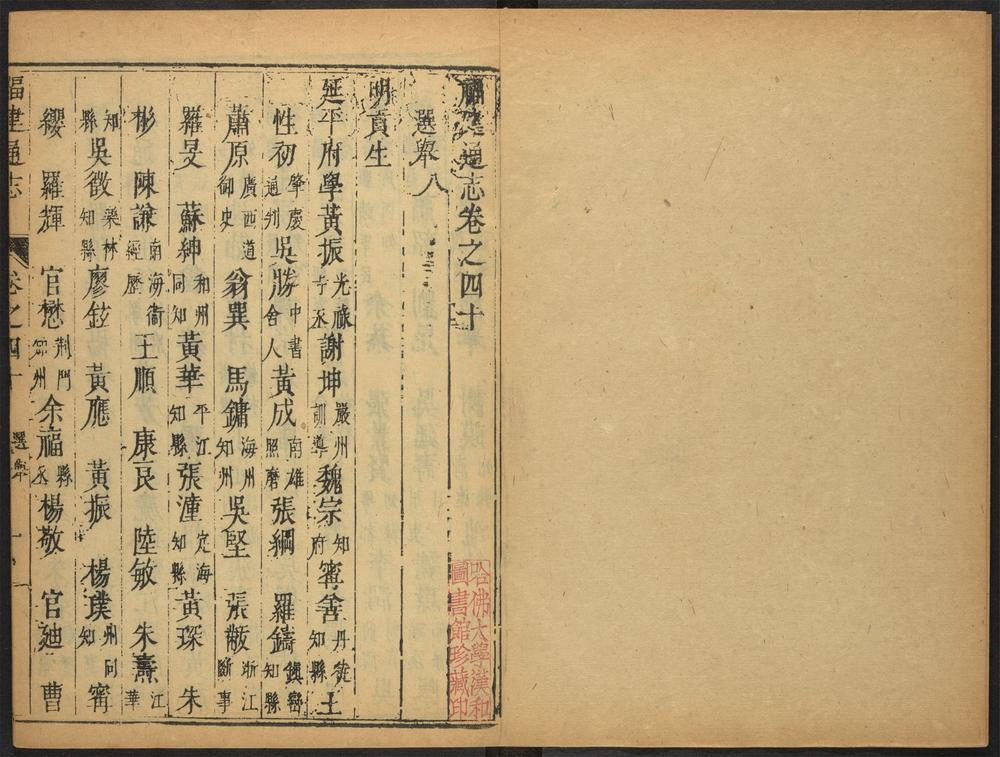 福建通志卷之四十
選舉八
明貢生
延平府學黃振光祿寺丞謝坤嚴州訓導魏宗知府甯舍丹徒知縣王
性初肇慶通判吳勝中書舍人黃成南雄照磨張綱 羅鑄鎮巒知縣
蕭原廣西道御史翁巽 馬鏞海州知州吳堅 張敵浙江斷事
羅旻 蘇紳和州同知黃華平江知縣張潼定海知縣黃琛 朱
彬 陳謙南海衛經歷王順 康良 陸敏 朱燾江華
知縣吳徵藥林知縣廖鉉 黃應 黃振 楊璞州同知甯
纓 羅輝 官懋荆門知州余福縣丞楊敬 官廸 曹
福建通志 卷之四十 選舉
哈佛大學漢和
圖書館珍藏印